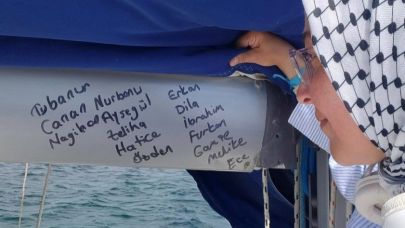 Tubanur
Canan Nurbanu
Nagihan Ayşegül
Zeliha
Hatice
Özden
Erkan
Dila
ibrahim
Furkan
Gamze
Melike
Ece